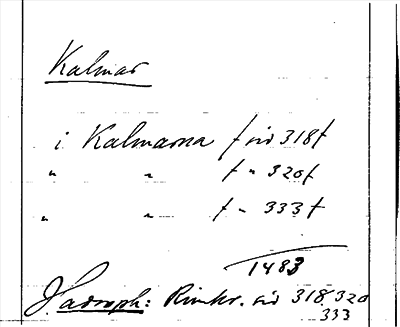 Kalmar
i Kalmarna f vid 318 f
" " f " 320 f
" " f " 333 f
1483
Hadorph: Rimkr. vid 318. 320
333